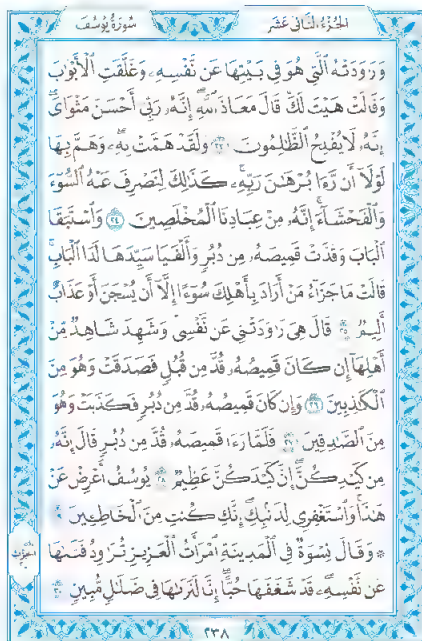 الجزء الثاني عشر
سورة يوسف
وَرَٰوَدَتْهُ ٱلَّتِى هُوَ فِى بَيْتِهَا عَن نَّفْسِهِۦ وَغَلَّقَتِ ٱلْأَبْوَٰبَ
وَقَالَتْ هَيْتَ لَكَ قَالَ مَعَاذَ ٱللَّهِ إِنَّهُۥ رَبِّىٓ أَحْسَنَ مَثْوَاىَ
إِنَّهُۥ لَا يُفْلِحُ ٱلظَّٰلِمُونَ ٢٣ وَلَقَدْ هَمَّتْ بِهِۦ وَهَمَّ بِهَا
لَوْلَآ أَن رَّءَا بُرْهَٰنَ رَبِّهِۦ كَذَٰلِكَ لِنَصْرِفَ عَنْهُ ٱلسُّوٓءَ
وَٱلْفَحْشَآءَ إِنَّهُۥ مِنْ عِبَادِنَا ٱلْمُخْلَصِينَ ٢٤ وَٱسْتَبَقَا
ٱلْبَابَ وَقَدَّتْ قَمِيصَهُۥ مِن دُبُرٍ وَأَلْفَيَا سَيِّدَهَا لَدَا ٱلْبَابِ
قَالَتْ مَا جَزَآءُ مَنْ أَرَادَ بِأَهْلِكَ سُوٓءًا إِلَّآ أَن يُسْجَنَ أَوْ عَذَابٌ
أَلِيمٌ ٢٥ قَالَ هِىَ رَٰوَدَتْنِى عَن نَّفْسِى وَشَهِدَ شَاهِدٌ مِّنْ
أَهْلِهَآ إِن كَانَ قَمِيصُهُۥ قُدَّ مِن قُبُلٍ فَصَدَقَتْ وَهُوَ مِنَ
ٱلْكَٰذِبِينَ ٢٦ وَإِن كَانَ قَمِيصُهُۥ قُدَّ مِن دُبُرٍ فَكَذَبَتْ وَهُوَ
مِنَ ٱلصَّٰدِقِينَ ٢٧ فَلَمَّا رَءَا قَمِيصَهُۥ قُدَّ مِن دُبُرٍ قَالَ إِنَّهُۥ
مِن كَيْدِكُنَّ إِنَّ كَيْدَكُنَّ عَظِيمٌ ٢٨ يُوسُفُ أَعْرِضْ عَنْ
هَٰذَا وَٱسْتَغْفِرِى لِذَنۢبِكِ إِنَّكِ كُنتِ مِنَ ٱلْخَاطِـِٔينَ ٢٩
۞ وَقَالَ نِسْوَةٌ فِى ٱلْمَدِينَةِ ٱمْرَأَتُ ٱلْعَزِيزِ تُرَٰوِدُ فَتَىٰهَا
عَن نَّفْسِهِۦ قَدْ شَغَفَهَا حُبًّا إِنَّا لَنَرَىٰهَا فِى ضَلَٰلٍ مُّبِينٍ ٣٠
٢٣٨